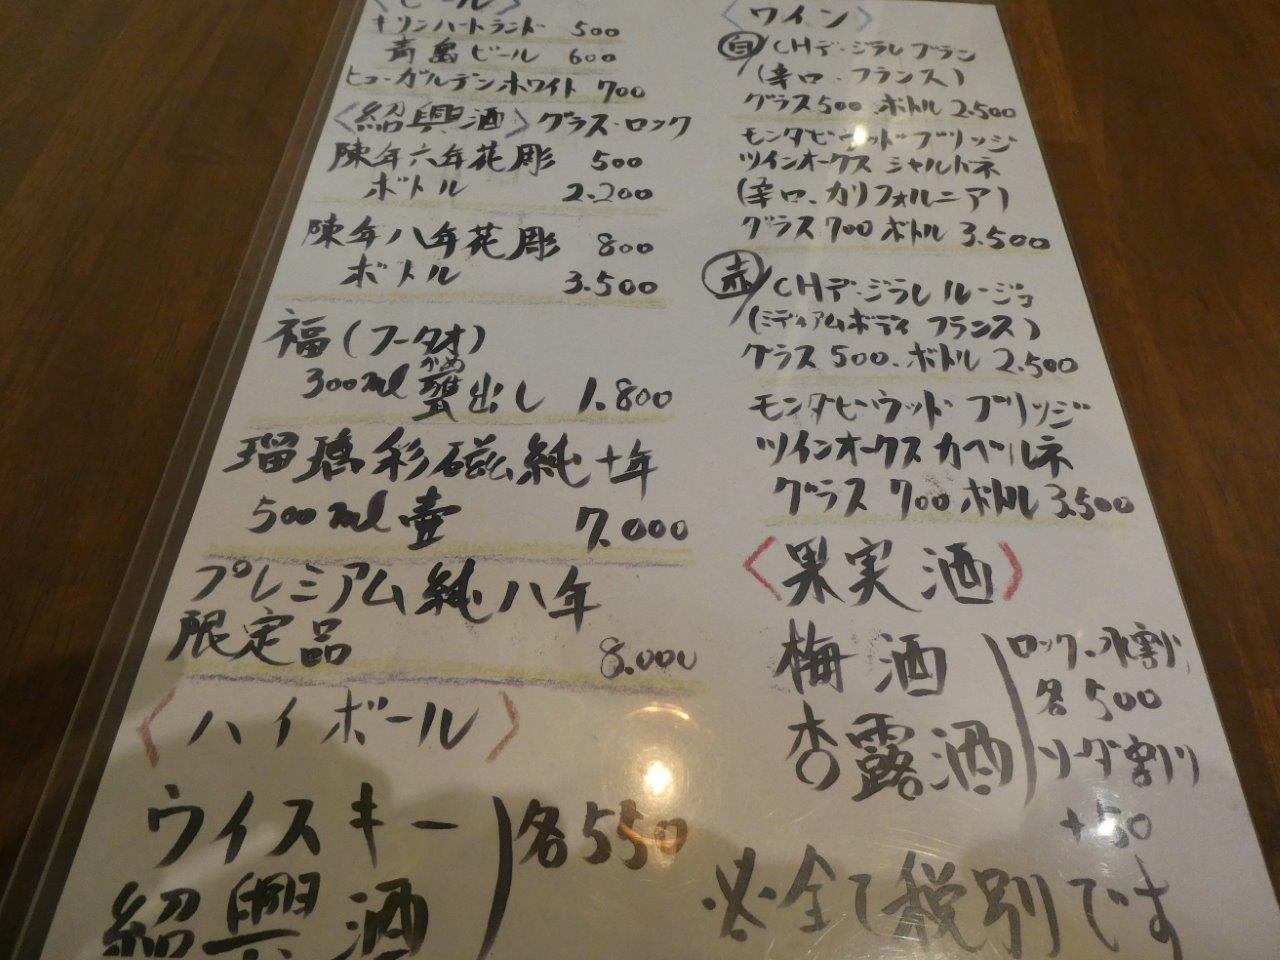 〈ビール〉
キリンハートランド 500
青島ビール 600
ヒューガルデンホワイト 700
〈紹興酒〉グラス・ロック
陳年六年花彫 500
ボトル 2.200
陳年八年花彫 800
ボトル 3.500
福(フータオ)
300ml 甕出し 1.800
かめ
瑠璃彩磁純十年
500ml 壺 7.000
プレミアム純八年
限定品 8.000
〈ハイボール〉
ウイスキー
紹興酒
各550
〈ワイン〉
白 CHデ・ジラレブラン
(辛口、フランス)
グラス500 ボトル2.500
モンダビウッドブリッジ
ツインオークス シャルドネ
(辛口、カリフォルニア)
グラス700 ボトル3.500
赤 CHデ・ジラレルージュ
(ミディアムボディ フランス)
グラス500.ボトル2.500
モンダビウッドブリッジ
ツインオークス カベルネ
グラス700 ボトル3.500
〈果実酒〉
梅酒
杏露酒
ロック、水割り
各500
ソーダ割り
+50
※全て税別です